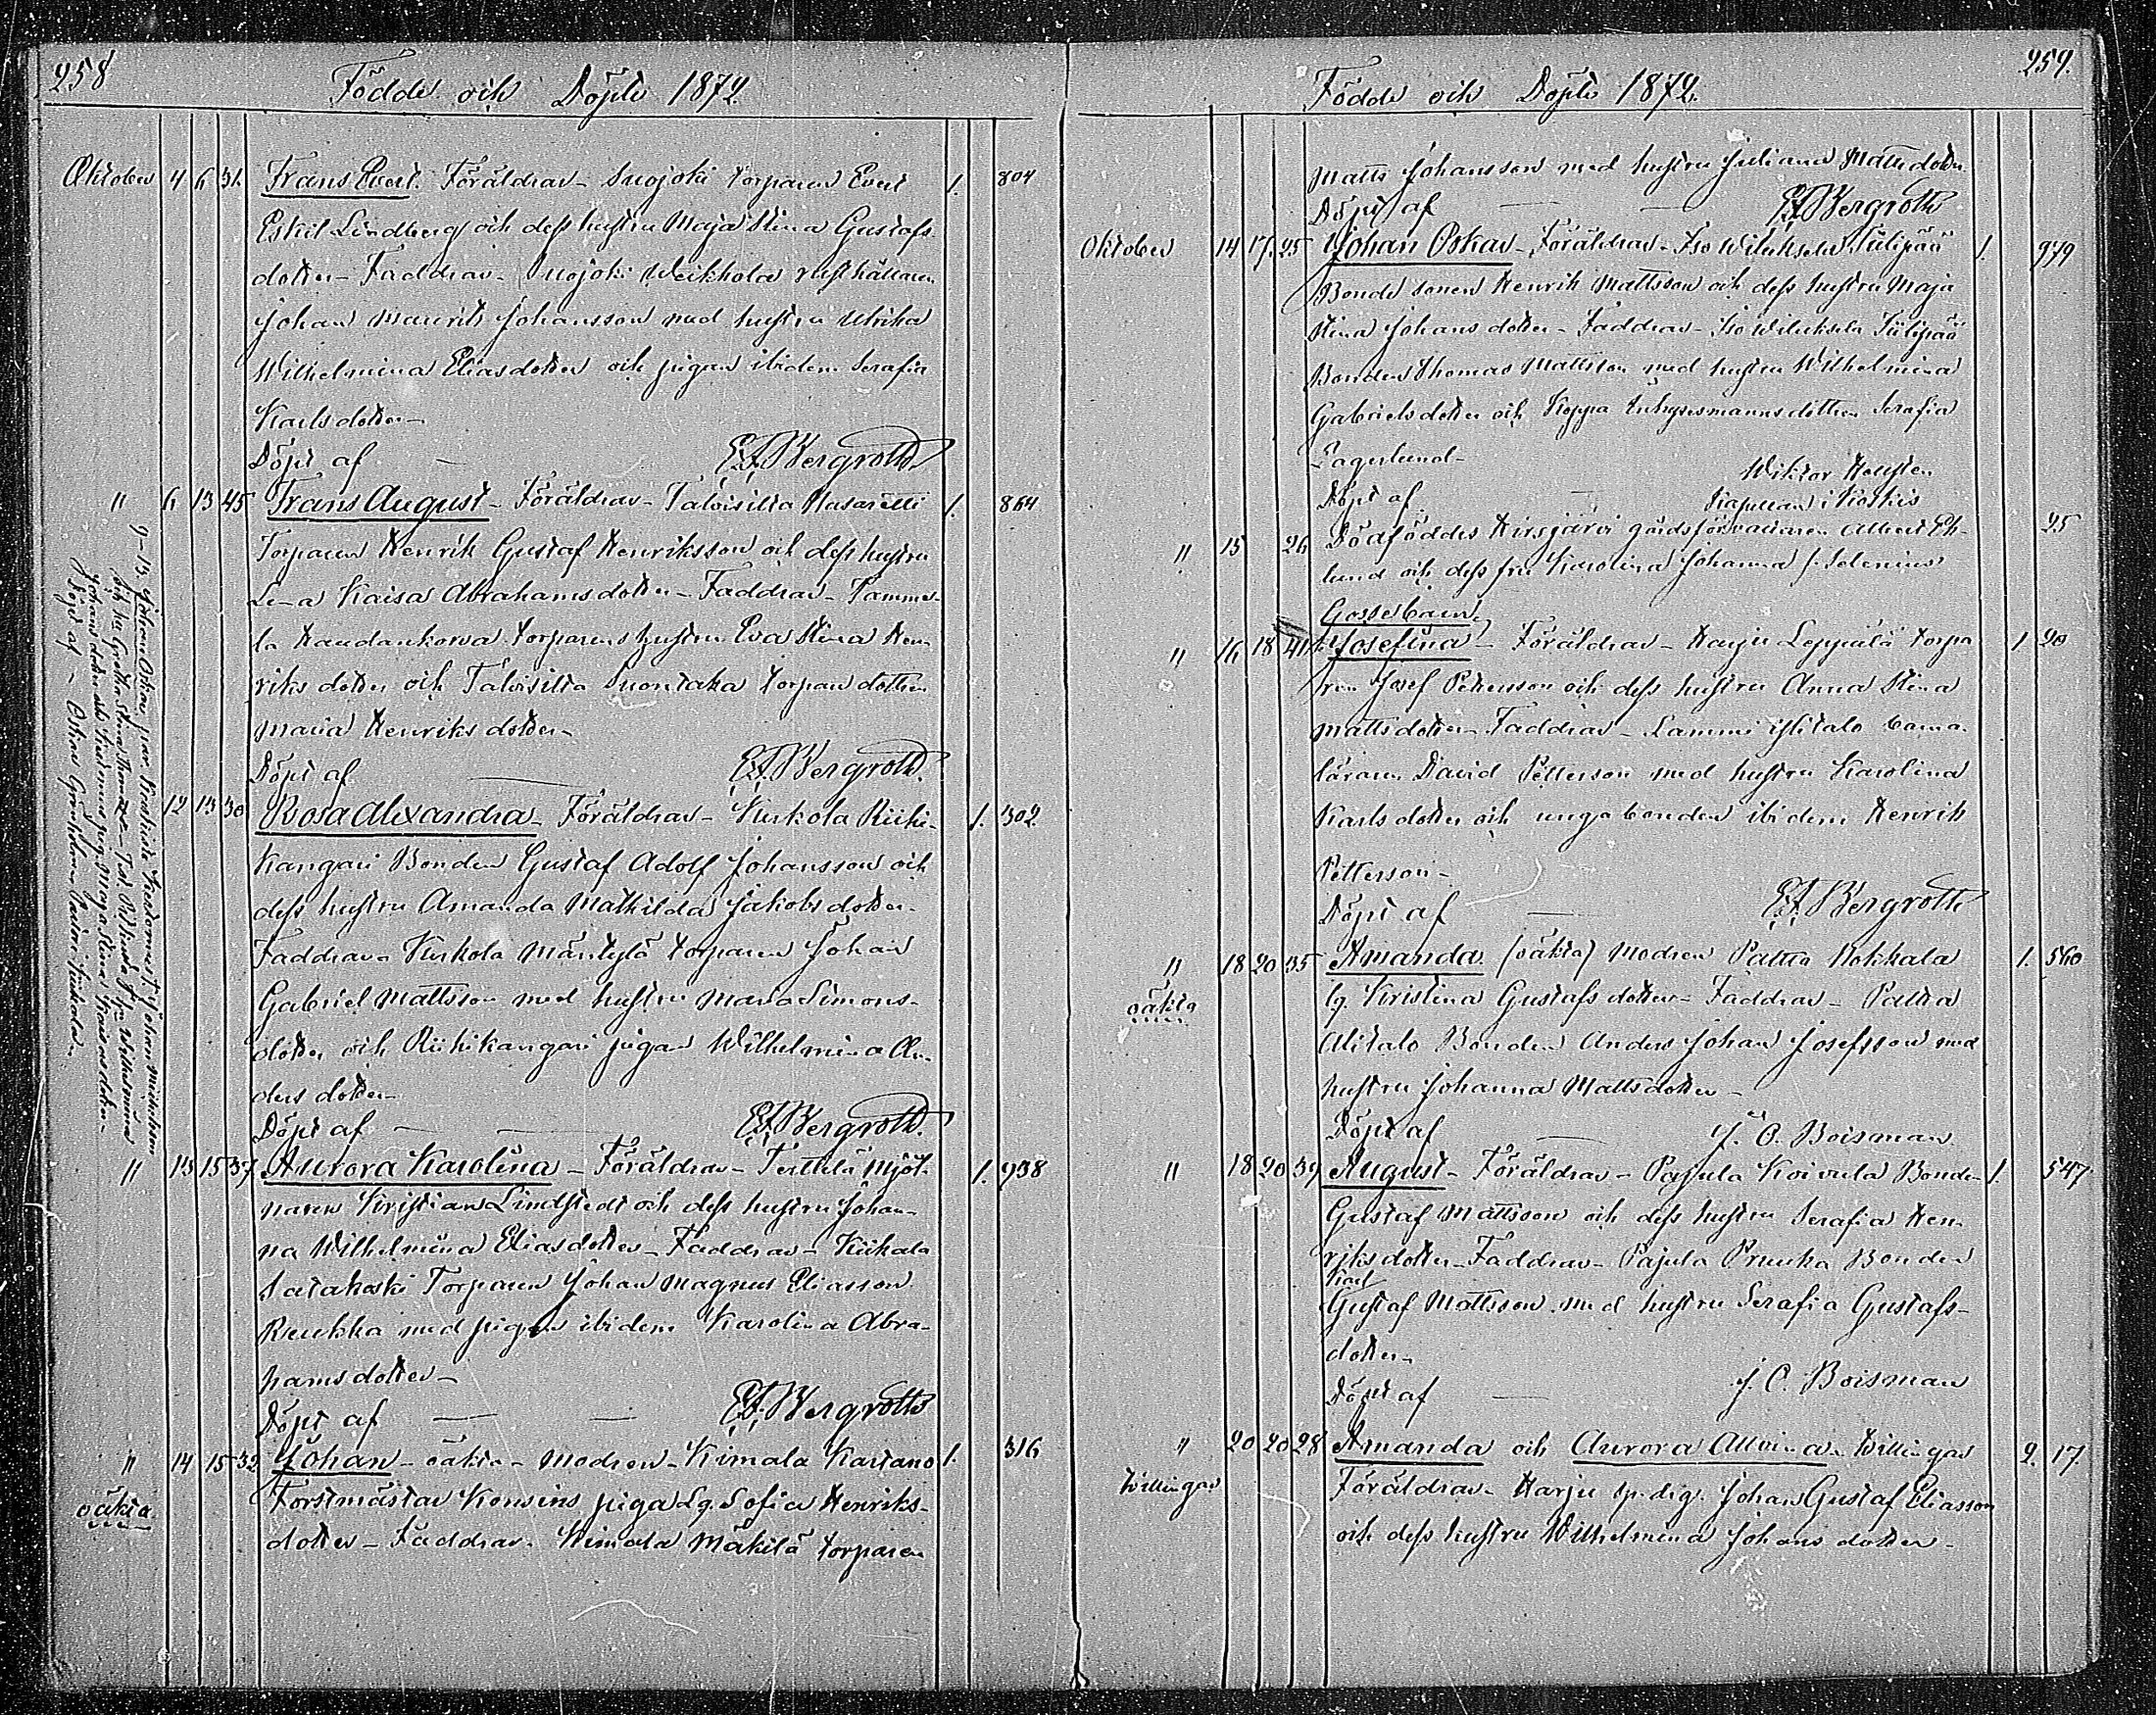 258
Födde och Döpte 1872.
Oktober 4 6 31. Frans Evert. Föräldrar - Suojoki torparen Evert 1. 804
Eskil Lindberg och dess hustru Maja Stina Gustafs
dotter - Faddrar - Suojoki Weikkola rusthållaren
Johan Maurits Johansson med hustru Ulrika
Wilhelmina Eliasdotter och pigan ibidem Serafia
Karlsdotter -
Döpt af — E.F. Bergroth.
" 6 13 45 Frans August - Föräldrar - Talvisilta Nasaretti 1. 864
Torparen Henrik Gustaf Henriksson och dess hustru
Lena Kaisa Abrahamsdotter - Faddrar - Tamme-
la Haudankorva torparens hustru Eva Stina Hen-
riks dotter och Talvisilta Suontaka torpare dottren
Maria Henriks dotter -
Döpt af — E.F. Bergroth.
12 13 30 Rosa Alexandra - Föräldrar - Kirkola Riihi- 1. 302
kangari Bonden Gustaf Adolf Johansson och
dess hustru Amanda Mathilda Jakobsdotter -
Faddrar - Kirkola Mäntylä torparen Johan
Gabriel Mattsson med hustru Maria Simons-
dotter och Riihikangari pigan Wilhelmina An-
ders dotter -
Döpt af — E.F. Bergroth.
" 13 15 37 Aurora Karolina - Föräldrar - Terttilä Mjöl- 1. 938
naren Kristian Lindstedt och dess hustru Johan-
na Wilhelmina Eliasdotter - Faddrar - Kiikala
Satakoski Torparen Johan Magnus Eliasson
Ruukka med pigan ibidem Karolina Abra-
hamsdotter -
Döpt af — E.F. Bergroth
" 14 15 32 Johan - oäkta - Modren - Kimala Kartano 1. 316
oäkta.
Forstmästar Konsins piga Lg. Sofia Henriks-
dotter - Faddrar - Kimala Mäkilä torparen
9 - 13. Johan Oskar,
Johans dotter
Döpt af - Oskar Grönholm
259.
Födde och Döpte 1872.
Matts Johansson med hustru Juliana Mattsdotter
Döpt af — E.F. Bergroth
Oktober 14 17. 25 Johan Oskar - Föräldrar - Iso Wiluksela Tiilipää 1. 979
Bonde sonen Henrik Mattsson och dess hustru Maja
Stina Johans dotter - Faddrar - Iso Wiluksela Tiilipää
Bonden Thomas Mattsson med hustru Wilhelmina
Gabrielsdotter och Koppa Inhysesmanns dottren Serafia
Lagerlund -
Wiktor Heusten
Döpt af — Kapellan i Koskis
" 15 26 Dödföddes Hirsjärvi gårdsförvaltaren Albert Ek- 25
lund och dess fru Karolina Johanna f. Selenius
Gossebarn.
" 16 18 41 Josefina - Föräldrar - Harju Leppälä torpa 1 20
ren Josef Petersson och dess hustru Anna Stina
Mattsdotter - Faddrar - Lammi Ylitalo barna-
läraren David Petterson med hustru Karolina
Karlsdotter och unga bonden ibidem Henrik
Petterson -
Döpt af — E.F. Bergroth
" 18 20 35 Amanda (oäkta) Modren Palttа Kokkala 1. 560
oäkta
lg. Kristina Gustafs dotter - Faddrar - Paltta
Alitalo Bonden Anders Johan Josefsson med
hustru Johanna Mattsdotter -
Döpt af — J. C. Boisman
" 18 20 39 August - Föräldrar - Pajula Koivula Bonden 1. 547
Gustaf Mattsson och dess hustru Serafia Hen-
riksdotter - Faddrar - Pajula Prunka Bonden
Karl
Gustaf Mattsson med hustru Serafia Gustafs-
dotter -
Döpt af — J. C. Boisman
" 20 20 28 Amanda och Aurora Allvina - Tvillingar 2. 17.
Tvillingar
Föräldrar - Harju sp. drg. Johan Gustaf Eliasson
och dess hustru Wilhelmina Johans dotter -